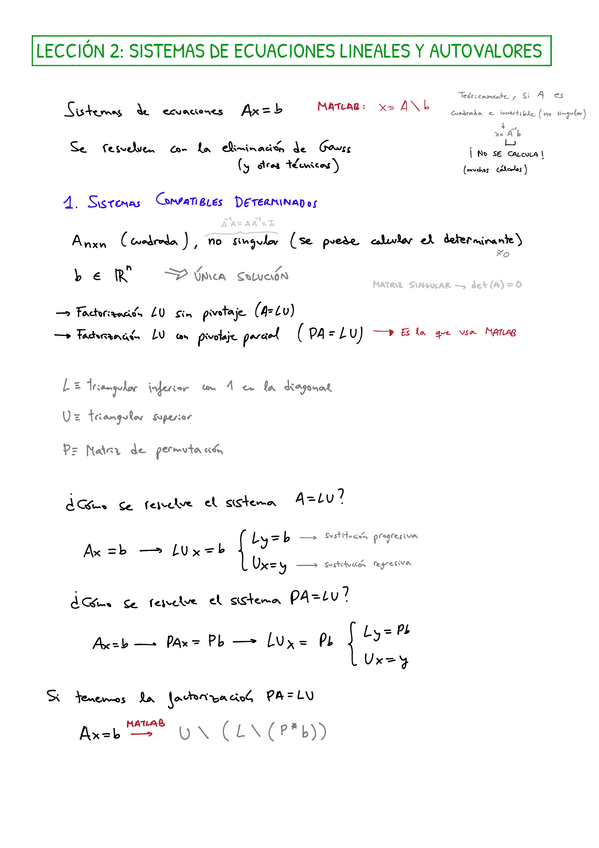 LECCIÓN 2: SISTEMAS DE ECUACIONES LINEALES Y AUTOVALORES
Sistemas de ecuaciones Ax=b MATLAB: x=A\b
Teóricamente, si A es
cuadrada e invertible (no singular)
x=A⁻¹b
¡NO SE CALCULA!
(muchos cálculos)
Se resuelven con la eliminación de Gauss
(y otras técnicas)
1. SISTEMAS COMPATIBLES DETERMINADOS
A⁻¹A=AA⁻¹=I
Anxn (cuadrada), no singular (se puede calcular el determinante)
≠0
b ∈ ℝⁿ ⇒ ÚNICA SOLUCIÓN
MATRIZ SINGULAR → det(A)=0
→ Factorización LU sin pivotaje (A=LU)
→ Factorización LU con pivotaje parcial (PA=LU) → Es la que usa MATLAB
L ≡ triangular inferior con 1 en la diagonal
U ≡ triangular superior
P ≡ Matriz de permutación
¿Cómo se resuelve el sistema A=LU?
Ax=b → LUx=b { Ly=b → sustitución progresiva
Ux=y → sustitución regresiva
¿Cómo se resuelve el sistema PA=LU?
Ax=b → PAx=Pb → LUx=Pb { Ly=Pb
Ux=y
Si tenemos la factorización PA=LU
Ax=b MATLAB → U\(L\(P*b))